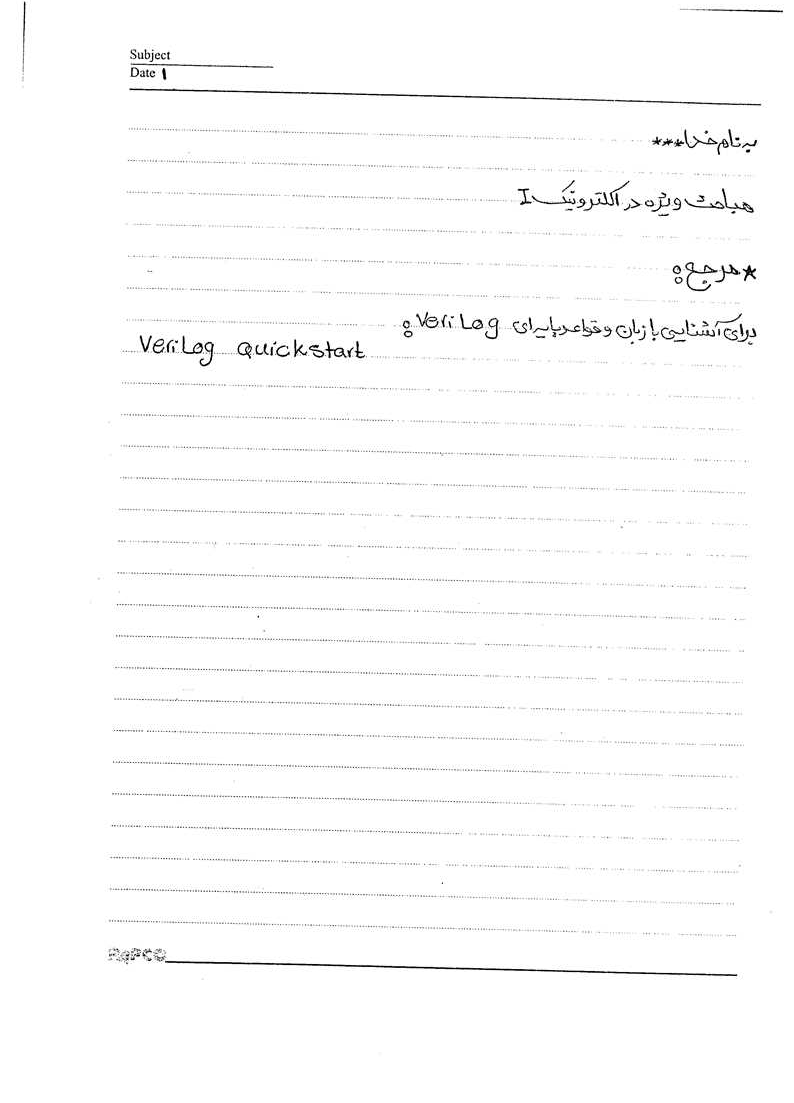 Subject
Date 1
به نام خدا***
مباحث ویژه در الکترونیک I
* مرجع:
برای آشنایی با زبان و قواعد پایه‌ای Verilog:
Verilog quickstart
PaPCO